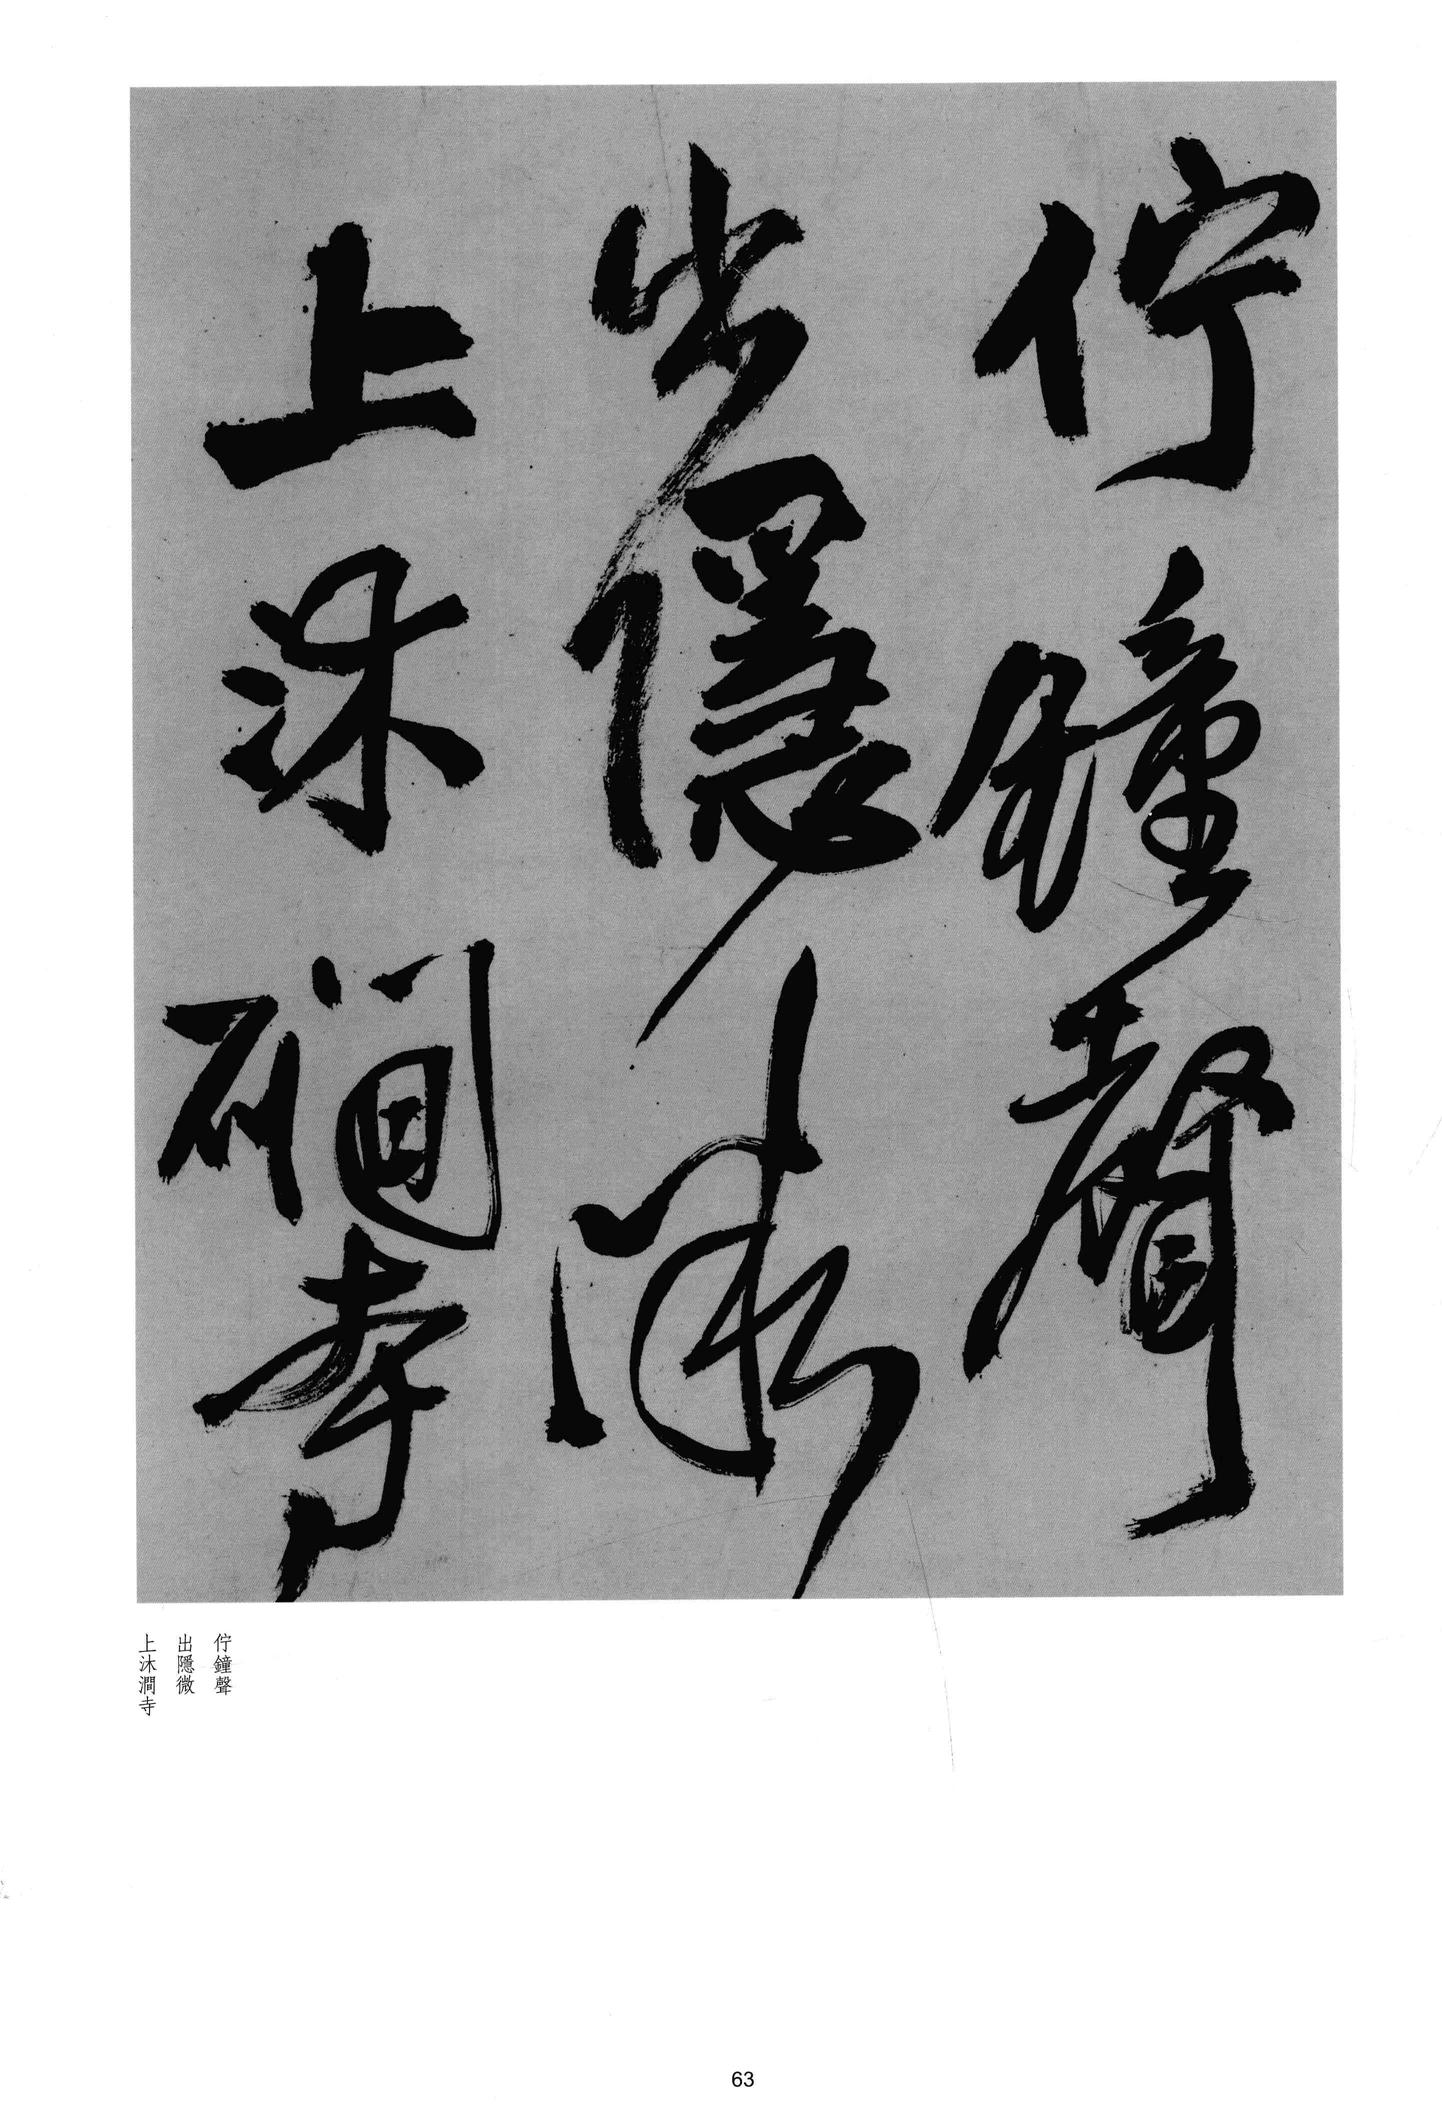 佇鐘聲
出隱微
上沐磵寺
佇鐘聲
出隱微
上沐澗寺
63